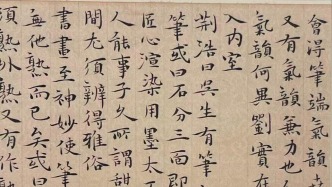 會得筆端氣韻
又有氣韻力也
氣韻何異劉實在
入內室
荊浩曰吳生有筆
筆或曰石分三面即
匠心渲染用墨太工
人能事子久所謂甜
間尤須辨得雅俗
書畫至神妙使筆
無他熟而已矣或曰
須熟外熟又有作